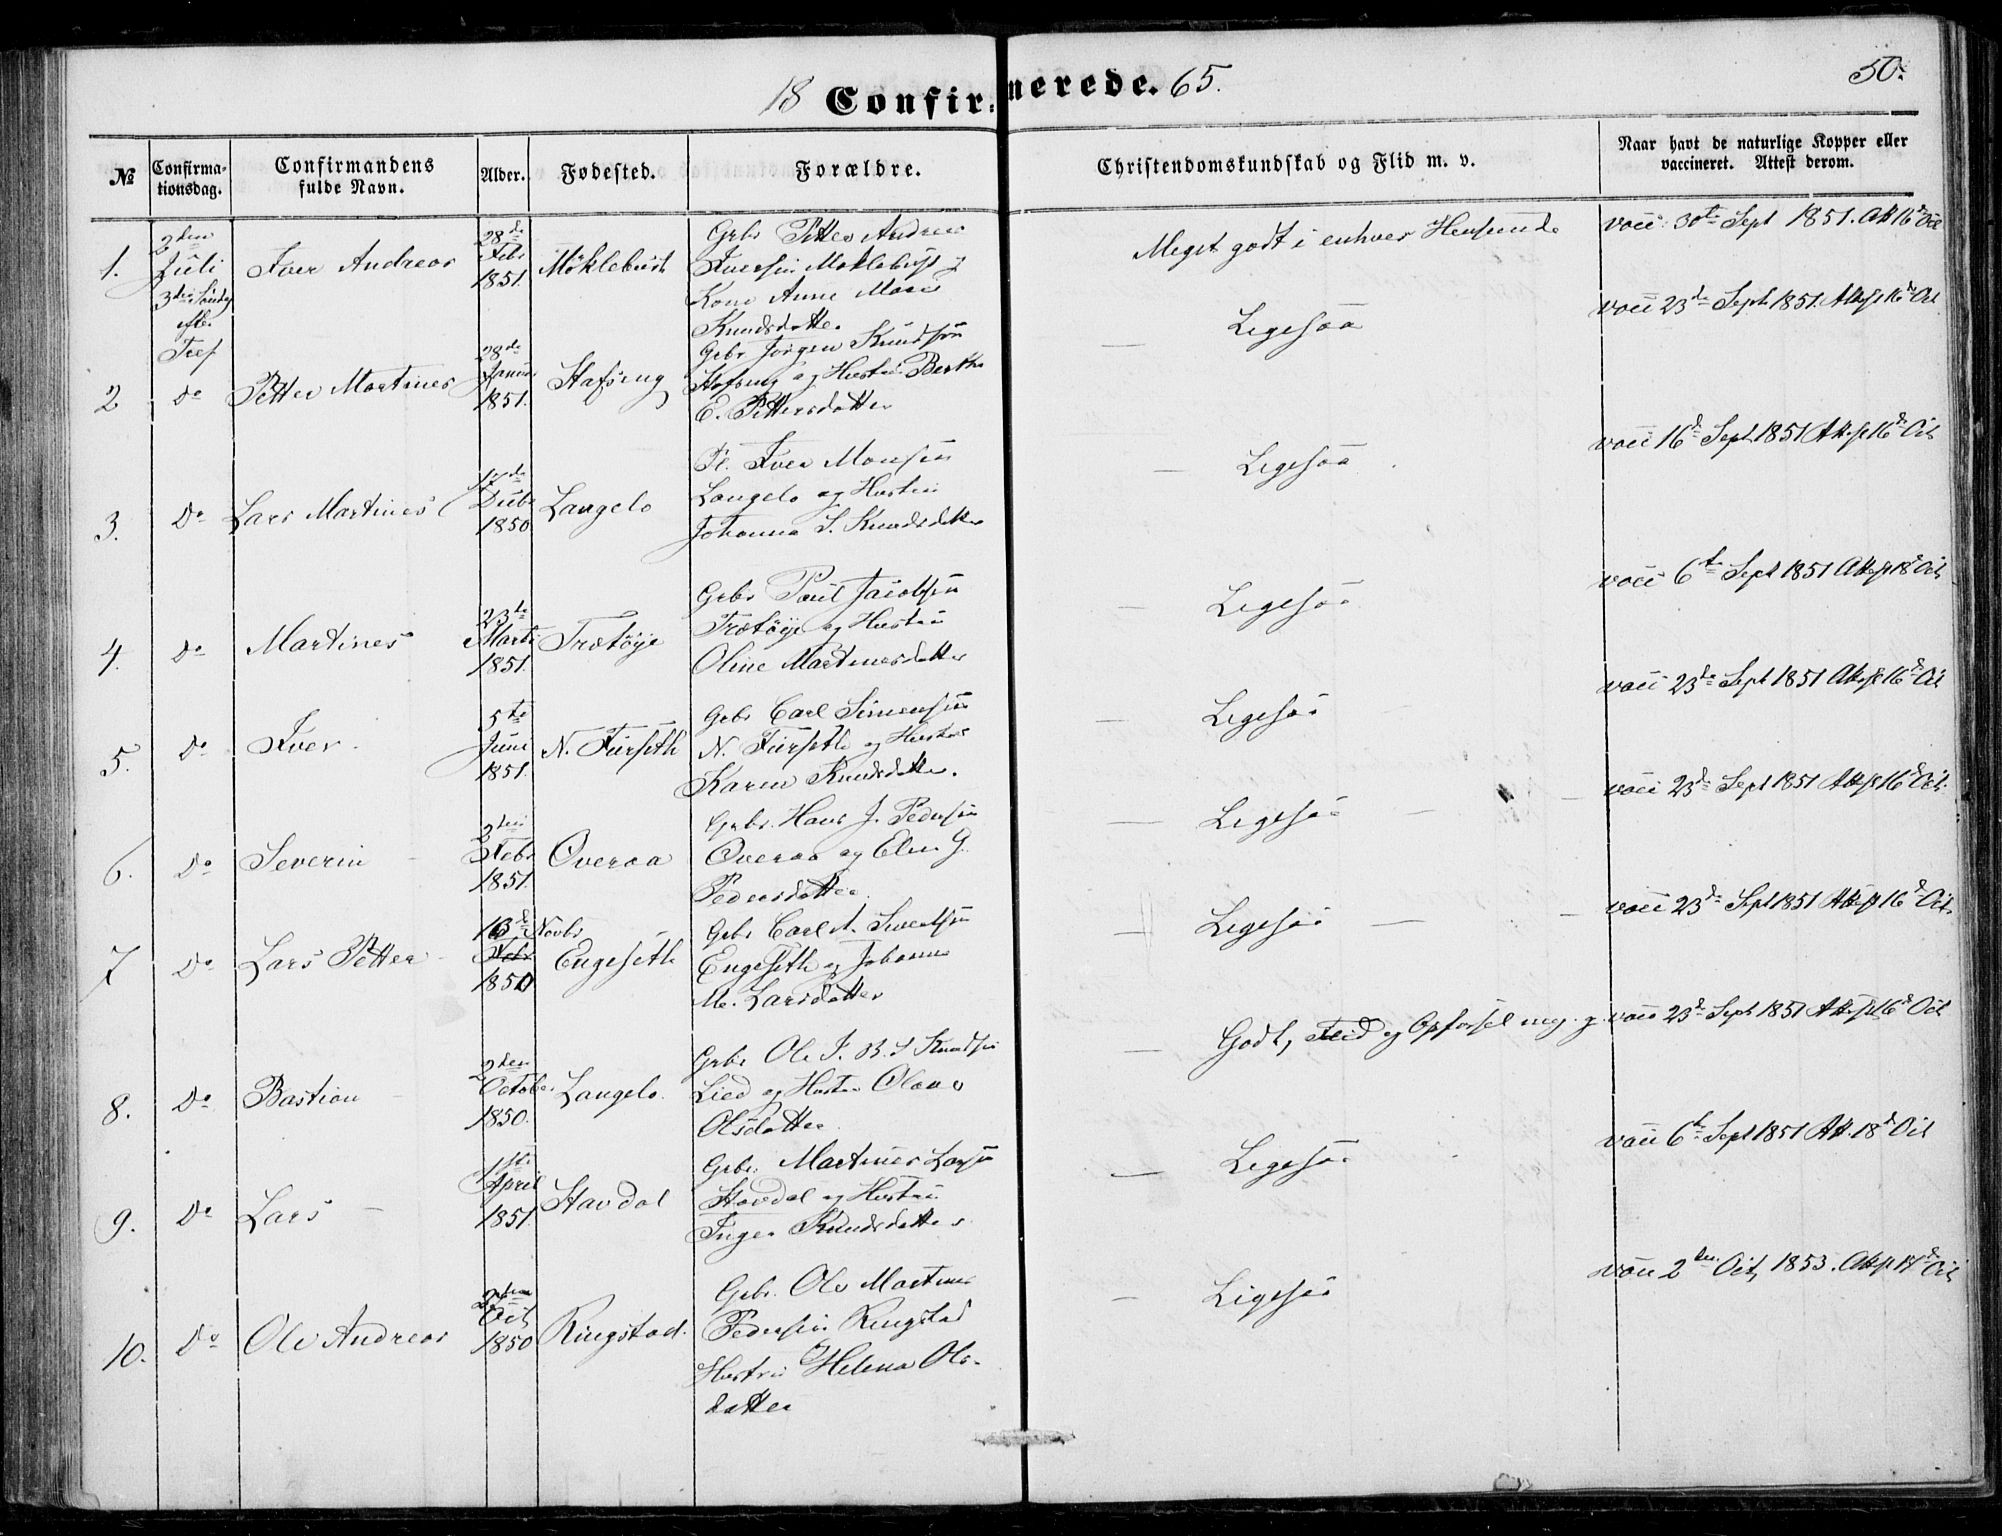 18 Confirmerede. 65.
50.
No
Confirma-
tionsdag.
Confirmandens
fulde Navn.
Alder.
Fødested.
Forældre.
Christendomskundskab og Flid m. v.
Naar havt de naturlige Kopper eller
vaccineret. Attest derom.
1.
2den
Juli
3die Søndag
efter
Tref
Iver Andreas
28de
Febr
1851.
Møklebust
Gbr Petter Andreas
Iversen Møklebust
Kone Anne Marie
Knudsdatter
Meget godt i enhver Henseende
vacc: 30te Sept 1851. Att 16de Oct
2
Do
Petter Martines
28de
Januar
1851.
Stafseng
Gbr Jørgen Knudsøn
Stafseng og Hustru Berthe
E. Pettersdatter
— Ligesaa
vacc 23de Sept 1851. Attest 16de Oct
3.
Do
Lars Martines
17de
Decbr
1850
Langelo
Pl. Iver Monsen
Langelo og Hustru
Johanna S. Knudsdatter
— Ligesaa
vacc 16de Sept 1851 Attest 16de Oct
4.
Do
Martines
23de
Marts
1851.
Trætøye
Gbr Poul Jacobsen
Trætøye og Hustru
Oline Martinesdatter
— Ligesaa
vacc 6te Sept 1851 Attest 18de Oct
5.
Do
Iver
5te
Juni
1851.
N. Furseth
Gbr Carl Simensen
N. Furseth og Hustru
Karen Knudsdatter.
— Ligesaa —
vacc 23de Sept 1851 Attest 16de Oct
6.
Do
Severin
2den
Febr
1851.
Overaa
Gbr. Hans J. Pedersen
Overaa og Elen G.
Pedersdatter
— Ligesaa —
vacc 23de Sept 1851 Attest 16de Oct.
7
Do
Lars Petter
16de Novbr
Febr
1850
Engeseth
Gbr Carl A. Sivertsen
Engeseth og Johanne
M. Larsdatter
— Ligesaa —
vacc 23de Sept 1851 Attest 16de Oct.
8.
Do
Bastian
2den
October
1850.
Langelo.
Gbr Ole I. B. S Knudsen
Lied og Hustru Olave
Olsdatter
— Godt, Flid og Opførsel meg. g.
vacc 23de Sept 1851 Attest 16de Oct
9.
Do
Lars
1ste
April
1851
Stavdal
Gbr. Martines Larsen
Stavdal og Hustru
Inger Knudsdatter
— Ligesaa
vacc 6te Sept 1851 Att. 18de Oct
10.
Do
Ole Andreas
Oct
1850
Ringstad.
Gbr. Ole Martines
Pedersen Ringstad
Hustru Helena Ols-
datter
— Ligesaa
vacc 2den Oct 1853. Attest 14de Oct